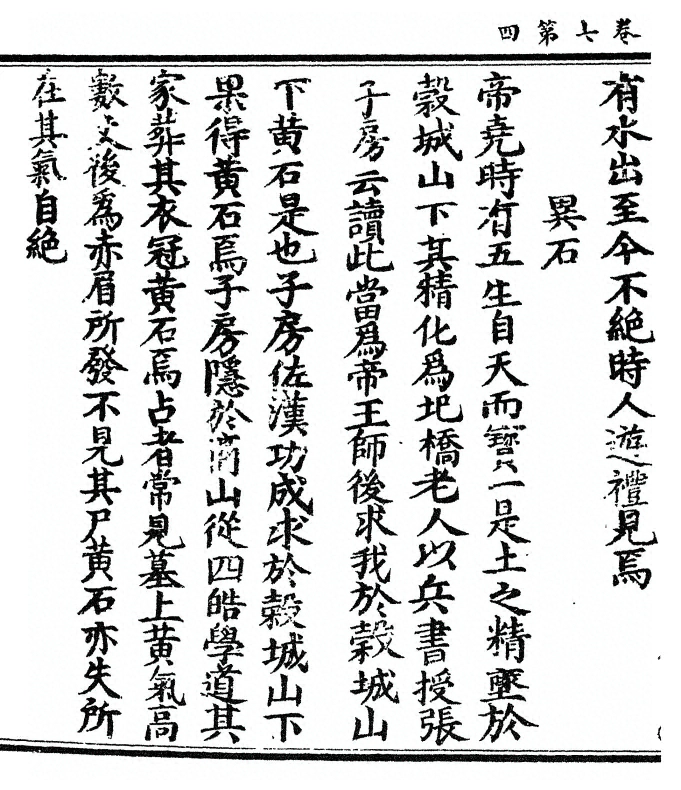 卷七第四
有水出至今不絕時人遊禮見焉
異石
帝堯時有五生自天而一是土之精墜於
穀城山下其精化爲圯橋老人以兵書授張
子房云讀此當爲帝王師後求我於穀城山
下黃石是也子房佐漢功成求於穀城山下
果得黃石焉子房隱於商山從四皓學道其
家葬其衣冠黃石焉占者常見墓上黃氣高
數丈後爲赤眉所發不見其尸黃石亦失所
在其氣自絕